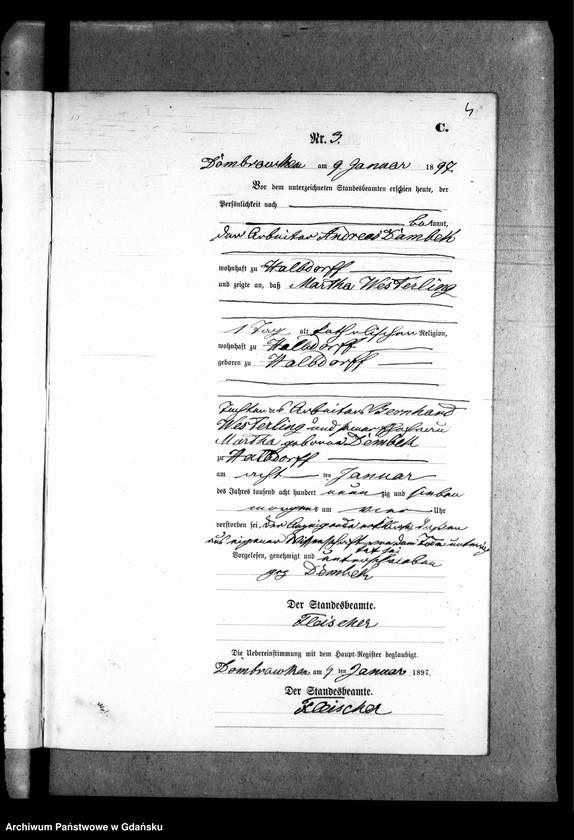 4
C.
Nr. 3.
Dombrowken am 9 Januar 1897.
Vor dem unterzeichneten Standesbeamten erschien heute, der
Persönlichkeit nach
bekannt,
der Arbeiter Andreas Dambek
wohnhaft zu Walddorff
und zeigte an, daß Martha Westerling
1 Tag alt katholischen Religion,
wohnhaft zu Walddorff
geboren zu Walddorff
Tochter des Arbeiters Bernhard
Westerling und seiner Ehefrau
Martha geborene Dembek
zu Walddorff
am acht ten Januar
des Jahres tausend acht hundert neun zig und sieben
morgens um vier Uhr
verstorben sei, der Anzeigende erklärte
aus eigener Wissenschaft von dem Tode unterrichtet sei
Vorgelesen, genehmigt und unterschrieben
gez Dembek
Der Standesbeamte.
Fleischer
Die Uebereinstimmung mit dem Haupt-Register beglaubigt.
Dombrowken am 9 ten Januar 1897.
Der Standesbeamte.
Fleischer
Archiwum Państwowe w Gdańsku